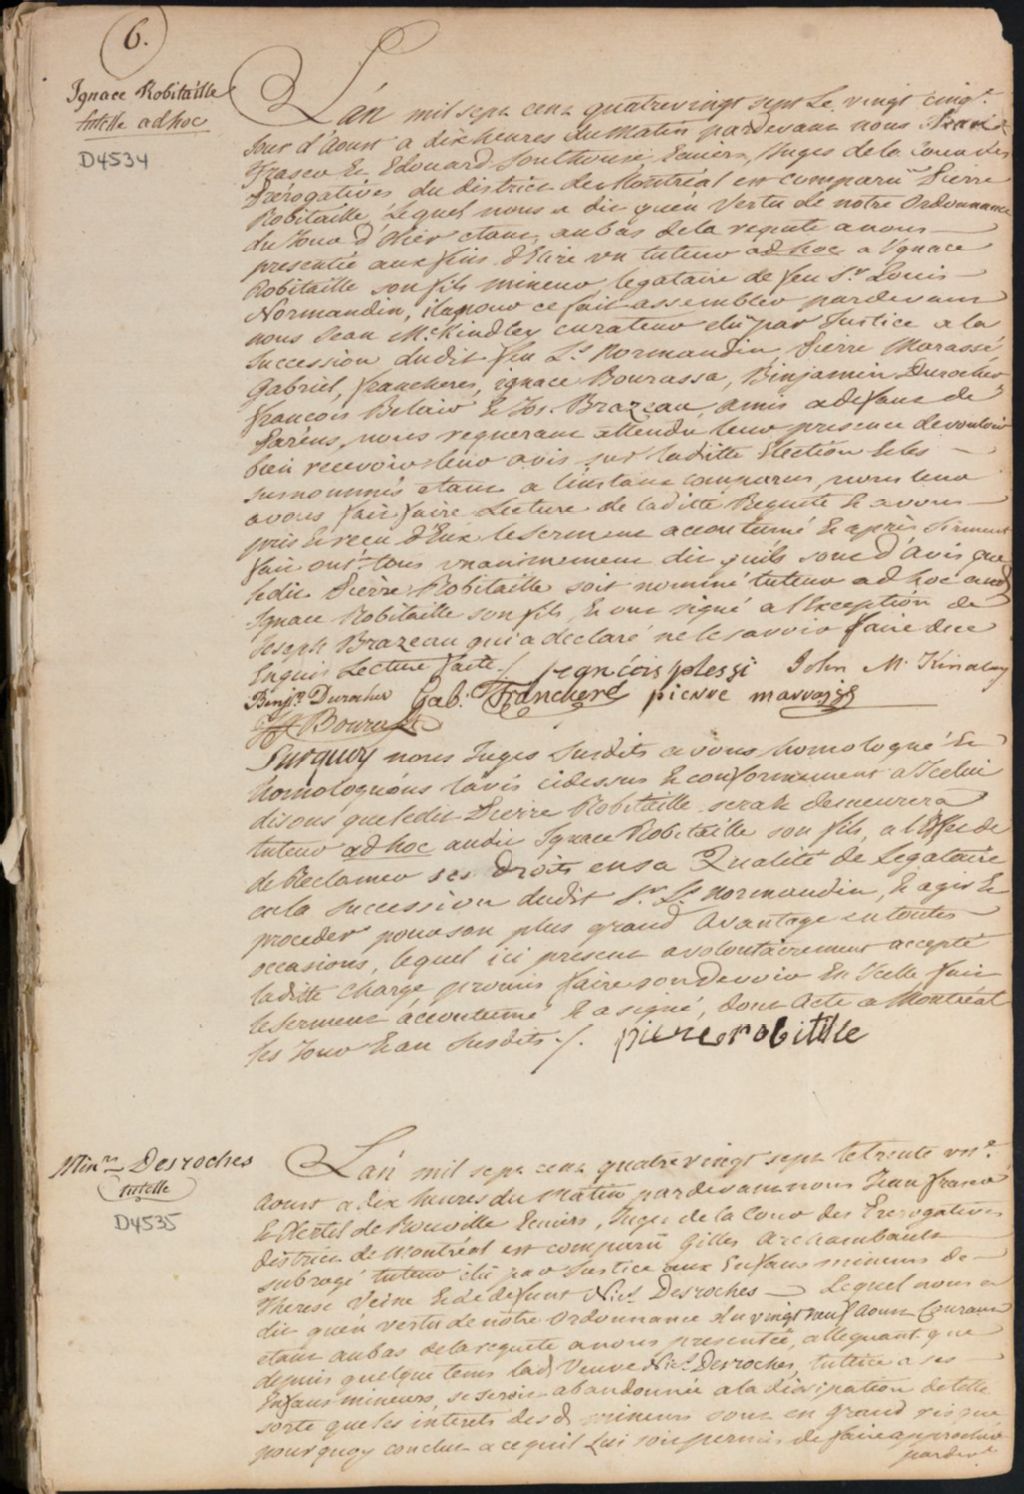 6.
Ignace Robitaille
tutelle ad hoc
D4534
L'án mil sept cent quatrevingt sept Le vingt cinq.e
Jour d'Aoust a dix heures du Matin pardevant nous Jean
Frasèr & Edouard Southouse Ecuiers, Juges de la Cour des
Prérogatives du district de Montréal est comparû Pierre
Robitaille, Lequel nous a dit quen Vertu de notre Ordonnance
du Jour d'Hier etant au bas de la requete a nous
presentée aux fins d'Elire un tuteur ad hoc a Ignace
Robitaille son fils mineur, legataire de feu S.r Louis
Normandin, il a pour ce fait assembler pardevant
nous Jean M.cKindley curateur elû par Justice a la
Succession dudit feu L.s Normandin, Pierre Marassé
Gabriel, francheres, ignace Bourassa, Binjamin Durocher
francois Belair & Jos. Brazeau, amis a defaut de
Paréns, nous requerant attendu leur presence de vouloir
bien recevoir leur avis sur laditte Election & les
susnommés etant a l'instant comparus, nous leur
avons fait faire Lecture de laditte Requete & avons
pris & recu d'Eux le serment accoutumé & après Serment
fait ont tous unanimement dit quils sont d'Avis que
ledit Pierre Robitaille soit nommé tuteur ad hoc aud
Ignace Robitaille son fils, & ont signé a l'Exception de
Joseph Brazeau qui a declaré ne le savoir faire de ce
Enquis Lecture faite ./.
francois John M.c Kindlay
Benj.n Durocher Gab: Franchere pierre
Bourassa
Surquoy nous Juges Susdits avons homologué &
homologuéons lavis cidessus & conformement a Icelui
disons que ledit Pierre Robitaille sera & demeurera
tuteur ad hoc audit Ignace Robitaille son fils, a l'Effet de
de Reclamer ses Droits en sa Qualité de Legataire
en la succession dudit S.r L.s Normandin, & agir &
proceder pour son plus grand Avantage en toutes
occasions, lequel ici present a volontairement accepté
laditte Charge promis faire son Devoir En Icelle fait
le serment accoutumé & a signé, dont Acte a Montréal
les Jour & an susdits ./. pierre robitille
Min.rs Desroches
tutelle
D4535
L'án mil sept cent quatrevingt sept le trente un.e
Aoust a dix heures du Matin pardevant nous Jean frasèr
& Hertel de Rouville Ecuiers, Juges de la Cour des Prerogatives
district de Montréal est comparû Gilles Archambault
subrogé tuteur elû par Justice aux Enfans mineurs de
Therese Veine & de defunt Nic.s Desroches Lequel nous a
dit quén vertu de notre Ordonnance du vingt neuf Aoust Courant
etant au bas de la requete a nous presentée, alleguant que
depuis quelque tems lad Veuve Nic.s Desroches, tutrice a ses
Enfans mineurs, se seroit abandonnée a la dissipation de telle
sorte que les interets des d mineurs sont en grand risque
pourquoy conclut a ce quil Lui soit permis de faire approcher
pardev.t